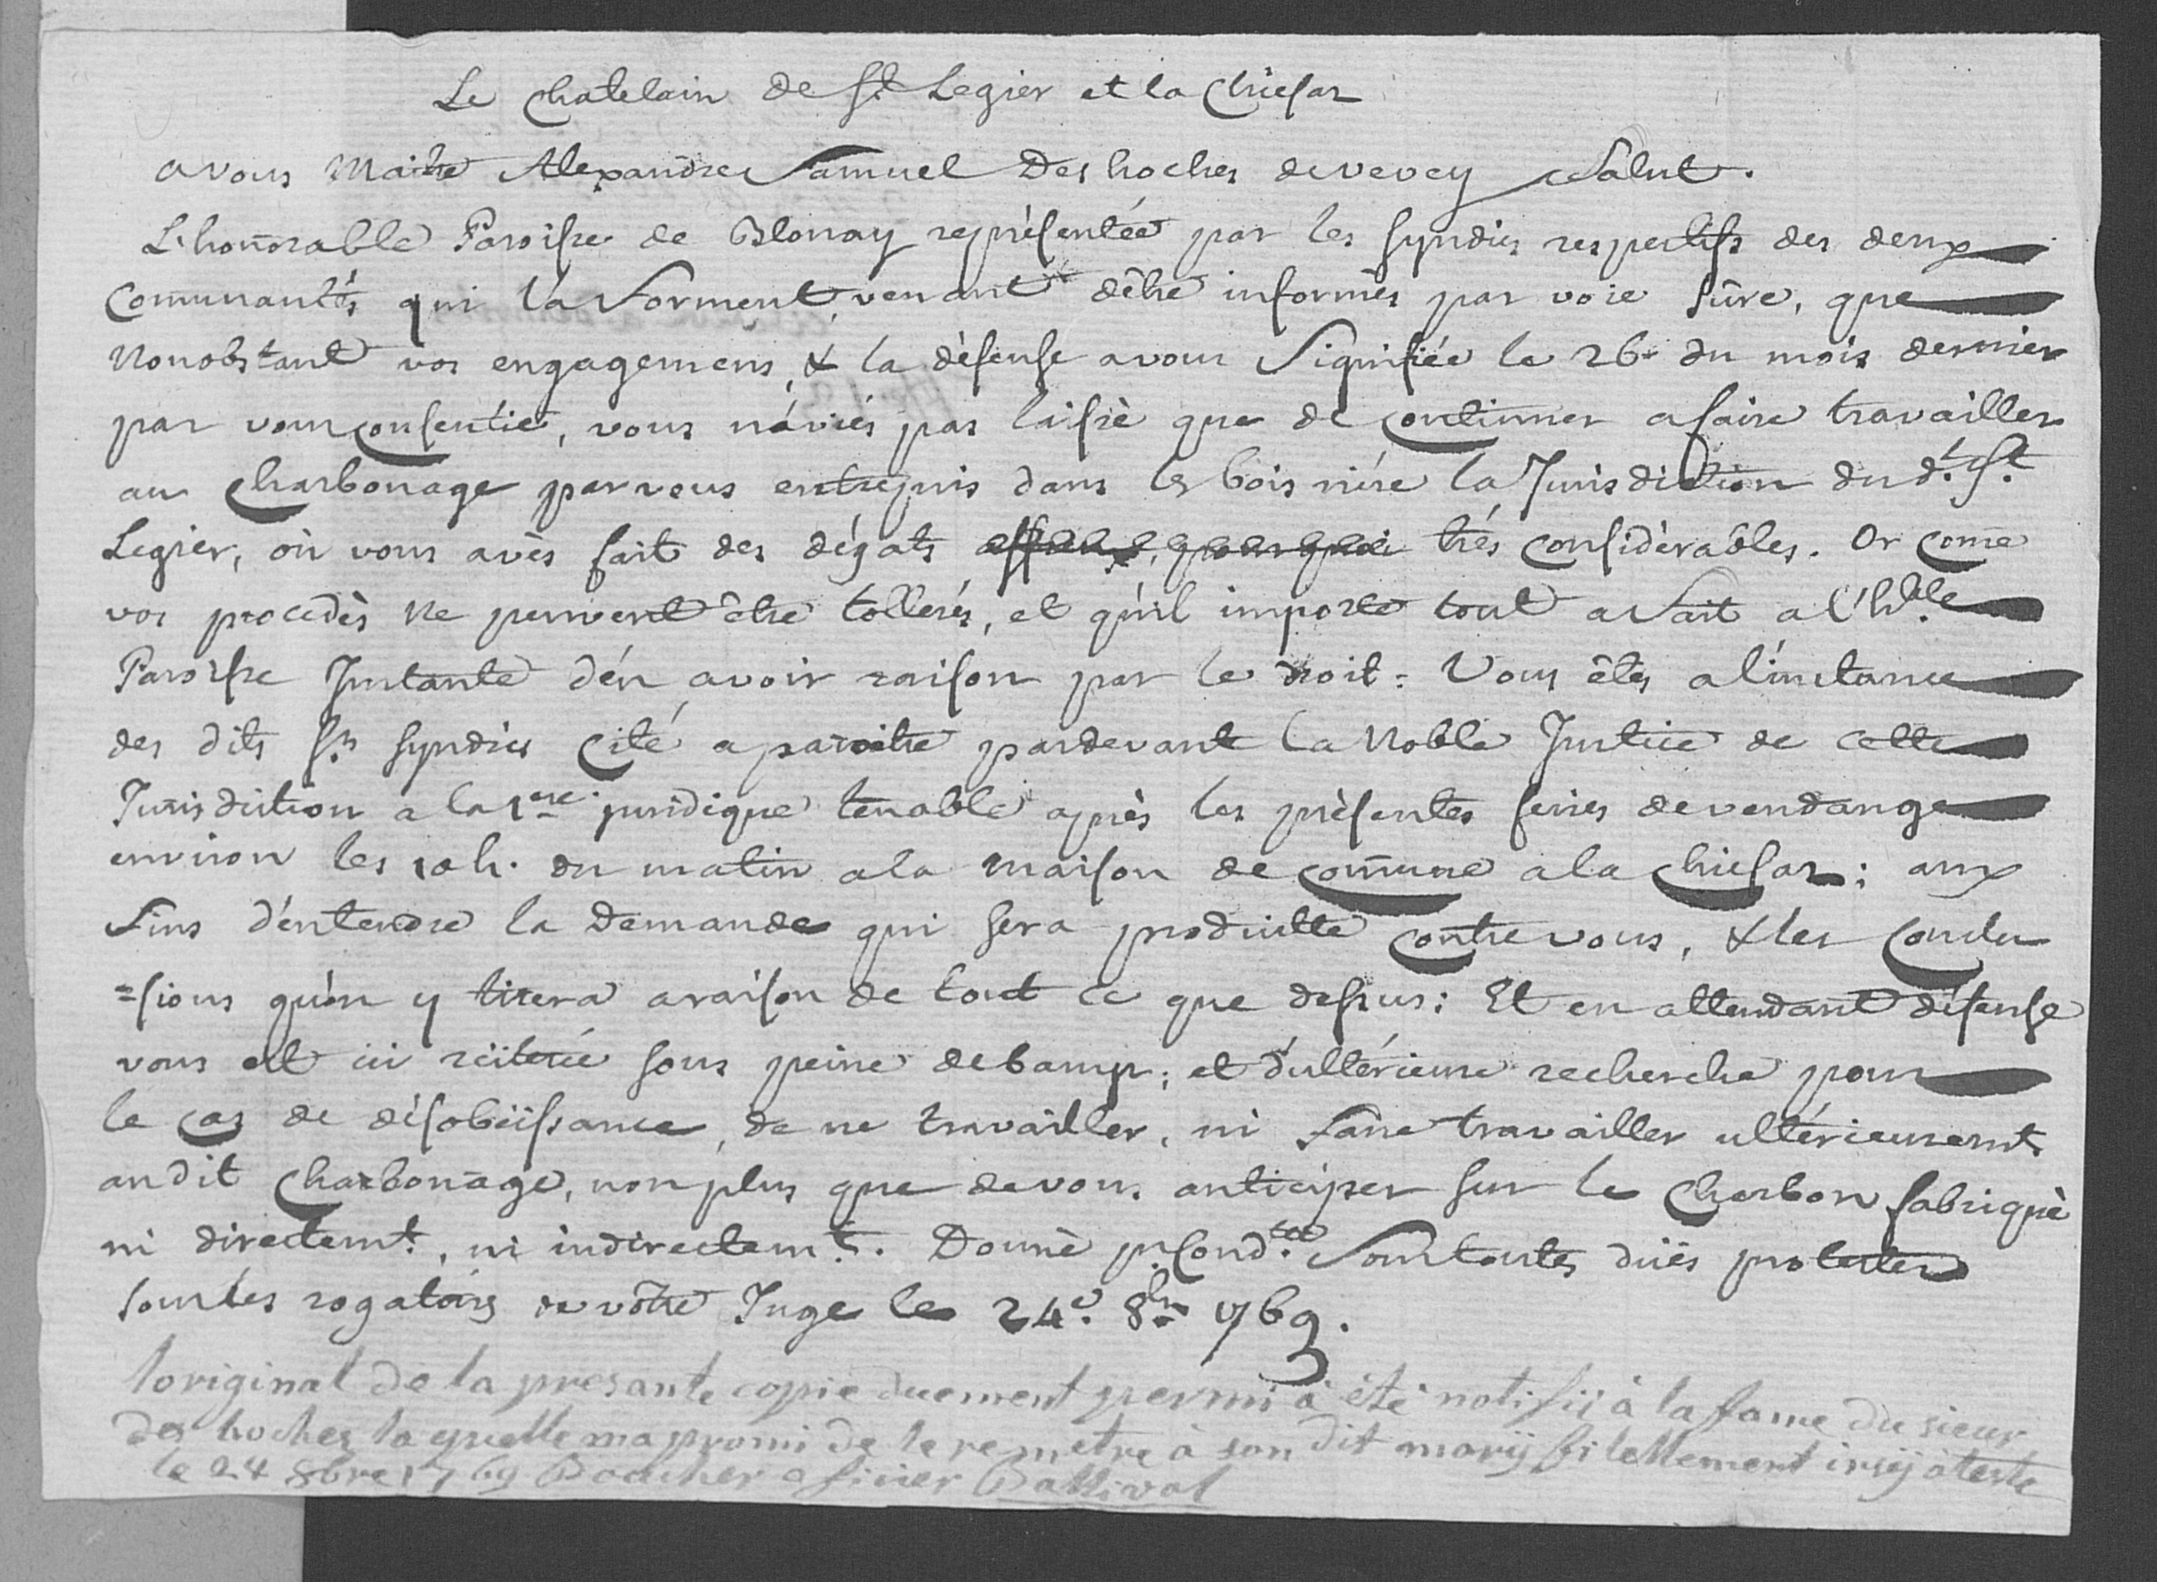 Le Chatelain de St Legier et la Chiesaz
a vous Maitre Alexandre Samuel Deshoches de vevey Salut.
L'honorable Paroisse de Blonay représentée par les syndics respectifs des deux
Comunautés qui la forment, venant d'être informés par voie sûre, que
Nonobstant vos engagemens, & la dèfense a vous Signifiée le 26e du mois dernier
par vous consentie, vous n'aviés pas laissè que de continuer a faire travailler
au Charbonage par vous entrepris dans les bois rière la Jurisdiction du dt. St.
Legier, où vous avès fait des dégats affreux, pourquoi très considèrables. Or come
vos procedès ne peuvent être tollerés, et qu'il importe tout a fait a l'hble
Paroisse Instante d'en avoir raison par le droit = Vous êtes a l'instance
des dits Srs syndics Cité a paroitre pardevant la Noble Justice de cette
Jurisdiction a la 1ere juridique tenable après les prèsentes feries de vendange
environ les 10 h. du matin a la maison de comune a la Chiesaz; aux
fins d'entendre la Demande qui sera produitte contre vous, & les Conclu
=sions qu'on y tirera a raison de tout ce que dessus: Et en attendant défense
vous est ici réiterée sous peine de bamps; et d'ultérieure recherche pour
le cas de désobéissance, de ne travailler, ni faire travailler ultérieuremt.
audit Charbonage, non plus que de vous anticiper sur le Charbon fabriquè
ni directemt., ni indirectemt. Donnè p. Cond.tee Sous toutes dües protestes
sous les rogatoires de vôtre Juge le 24e. 8bre 1769.
l'original de la presante copie duement permi a été notifij à la fame du sieur
des hoches la quelle ma promi de le remetre à son dit marij fidellement insij ateste
le 24 8bre 1769 Boucher ofisier Ballival